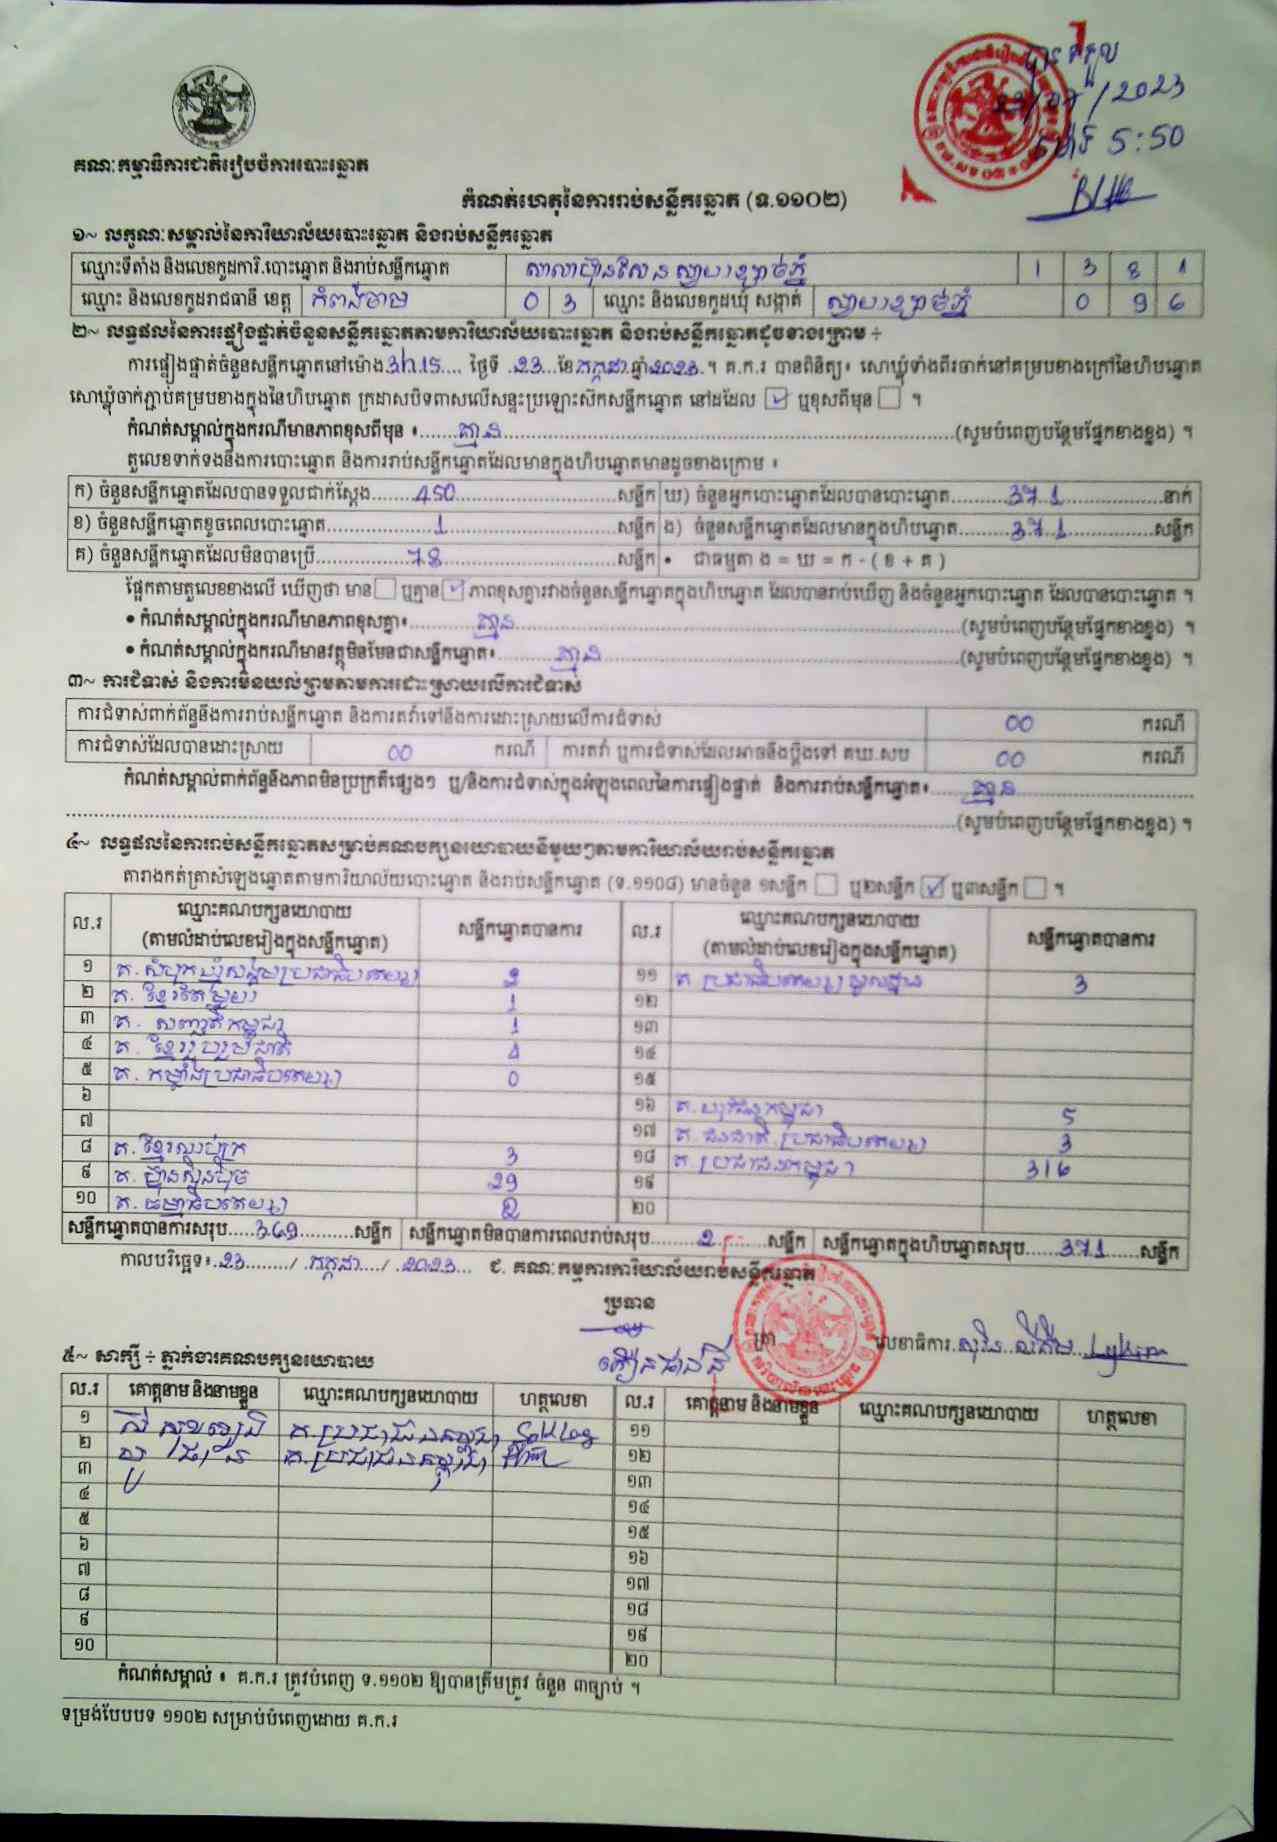 បានទទួល
23/07/2023
ម៉ោង 5:50
គណៈកម្មាធិការជាតិរៀបចំការបោះឆ្នោត
កំណត់ហេតុនៃការរាប់សន្លឹកឆ្នោត (ទ.១១០២)
១~ លក្ខណៈសម្គាល់នៃការិយាល័យបោះឆ្នោត និងរាប់សន្លឹកឆ្នោត
ឈ្មោះទីតាំង និងលេខកូដការិ.បោះឆ្នោត និងរាប់សន្លឹកឆ្នោត 1 3 8 1
ឈ្មោះ និងលេខកូដរាជធានី ខេត្ត កំពង់ចាម 0 3 ឈ្មោះ និងលេខកូដឃុំ សង្កាត់ ស្វាយខ្សាច់ភ្នំ 0 9 6
២~ លទ្ធផលនៃការផ្ទៀងផ្ទាត់ចំនួនសន្លឹកឆ្នោតតាមការិយាល័យបោះឆ្នោត និងរាប់សន្លឹកឆ្នោតដូចខាងក្រោម ÷
ការផ្ទៀងផ្ទាត់ចំនួនសន្លឹកឆ្នោតនៅម៉ោង 3h15 ថ្ងៃទី 23 ខែ កក្កដា ឆ្នាំ 2023 ។ គ.ក.រ បានពិនិត្យ៖ សោឃ្លុំទាំងពីរចាក់នៅគម្របខាងក្រៅនៃហិបឆ្នោត
សោឃ្លុំចាក់ភ្ជាប់គម្របខាងក្នុងនៃហិបឆ្នោត ក្រដាសបិទពាសលើសន្ទះប្រឡោះស៊កសន្លឹកឆ្នោត នៅដដែល ✓ ឬខុសពីមុន ។
កំណត់សម្គាល់ក្នុងករណីមានភាពខុសពីមុន ៖ គ្មាន (សូមបំពេញបន្ថែមផ្នែកខាងខ្នង) ។
តួលេខទាក់ទងនឹងការបោះឆ្នោត និងការរាប់សន្លឹកឆ្នោតដែលមានក្នុងហិបឆ្នោតមានដូចខាងក្រោម ៖
ក) ចំនួនសន្លឹកឆ្នោតដែលបានទទួលជាក់ស្តែង 450 សន្លឹក ឃ) ចំនួនអ្នកបោះឆ្នោតដែលបានបោះឆ្នោត 371 នាក់
ខ) ចំនួនសន្លឹកឆ្នោតខូចពេលបោះឆ្នោត 1 សន្លឹក ង) ចំនួនសន្លឹកឆ្នោតដែលមានក្នុងហិបឆ្នោត 371 សន្លឹក
គ) ចំនួនសន្លឹកឆ្នោតដែលមិនបានប្រើ 78 សន្លឹក • ជាធម្មតា ង = ឃ = ក - ( ខ + គ )
ផ្អែកតាមតួលេខខាងលើ ឃើញថា មាន ឬគ្មាន ✓ ភាពខុសគ្នារវាងចំនួនសន្លឹកឆ្នោតក្នុងហិបឆ្នោត ដែលបានរាប់ឃើញ និងចំនួនអ្នកបោះឆ្នោត ដែលបានបោះឆ្នោត ។
• កំណត់សម្គាល់ក្នុងករណីមានភាពខុសគ្នា៖ គ្មាន (សូមបំពេញបន្ថែមផ្នែកខាងខ្នង) ។
• កំណត់សម្គាល់ក្នុងករណីមានវត្ថុមិនមែនជាសន្លឹកឆ្នោត៖ គ្មាន (សូមបំពេញបន្ថែមផ្នែកខាងខ្នង) ។
៣~ ការជំទាស់ និងការមិនយល់ព្រមតាមការដោះស្រាយលើការជំទាស់
ការជំទាស់ពាក់ព័ន្ធនឹងការរាប់សន្លឹកឆ្នោត និងការតវ៉ាទៅនឹងការដោះស្រាយលើការជំទាស់ 00 ករណី
ការជំទាស់ដែលបានដោះស្រាយ 00 ករណី ការតវ៉ា ឬការជំទាស់ដែលអាចនឹងប្តឹងទៅ គឃ.សប 00 ករណី
កំណត់សម្គាល់ពាក់ព័ន្ធនឹងភាពមិនប្រក្រតីផ្សេងៗ ឬ/និងការជំទាស់ក្នុងអំឡុងពេលនៃការផ្ទៀងផ្ទាត់ និងការរាប់សន្លឹកឆ្នោត៖ គ្មាន
(សូមបំពេញបន្ថែមផ្នែកខាងខ្នង) ។
៤~ លទ្ធផលនៃការរាប់សន្លឹកឆ្នោតសម្រាប់គណបក្សនយោបាយនីមួយៗតាមការិយាល័យរាប់សន្លឹកឆ្នោត
តារាងកត់ត្រាសំឡេងឆ្នោតតាមការិយាល័យបោះឆ្នោត និងរាប់សន្លឹកឆ្នោត (ទ.១១០៨) មានចំនួន ១សន្លឹក ឬ២សន្លឹក ✓ ឬ៣សន្លឹក ។
ល.រ ឈ្មោះគណបក្សនយោបាយ (តាមលំដាប់លេខរៀងក្នុងសន្លឹកឆ្នោត) សន្លឹកឆ្នោតបានការ ល.រ ឈ្មោះគណបក្សនយោបាយ (តាមលំដាប់លេខរៀងក្នុងសន្លឹកឆ្នោត) សន្លឹកឆ្នោតបានការ
១ គ. សំបុកឃ្មុំសង្គមប្រជាធិបតេយ្យ 2 ១១ គ ប្រជាធិបតេយ្យមូលដ្ឋាន 3
២ គ. ខ្មែរតែមួយ 1 ១២
៣ គ. សញ្ជាតិកម្ពុជា 1 ១៣
៤ គ. ខ្មែររួបរួមជាតិ 4 ១៤
៥ គ. កម្លាំងប្រជាធិបតេយ្យ 0 ១៥
៦ ១៦ គ. យុវជនកម្ពុជា 5
៧ ១៧ គ. ជនជាតិប្រជាធិបតេយ្យ 3
៨ គ. ខ្មែរឈប់ក្រ 3 ១៨ គ. ប្រជាជនកម្ពុជា 316
៩ គ. ហ៊្វុនស៊ិនប៉ិច 29 ១៩
១០ គ. ធម្មាធិបតេយ្យ 2 ២០
សន្លឹកឆ្នោតបានការសរុប 369 សន្លឹក សន្លឹកឆ្នោតមិនបានការពេលរាប់សរុប 2 សន្លឹក សន្លឹកឆ្នោតក្នុងហិបឆ្នោតសរុប 371 សន្លឹក
កាលបរិច្ឆេទ៖ 23 / កក្កដា / 2023 ជ. គណៈកម្មការការិយាល័យរាប់សន្លឹកឆ្នោត
ប្រធាន
ត្រា លេខាធិការ
៥~ សាក្សី ÷ ភ្នាក់ងារគណបក្សនយោបាយ
ល.រ គោត្តនាម និងនាមខ្លួន ឈ្មោះគណបក្សនយោបាយ ហត្ថលេខា ល.រ គោត្តនាម និងនាមខ្លួន ឈ្មោះគណបក្សនយោបាយ ហត្ថលេខា
១ គ.ប្រជាជនកម្ពុជា ១១
២ គ.ប្រជាជនកម្ពុជា ១២
៣ ១៣
៤ ១៤
៥ ១៥
៦ ១៦
៧ ១៧
៨ ១៨
៩ ១៩
១០ ២០
កំណត់សម្គាល់ ៖ គ.ក.រ ត្រូវបំពេញ ទ.១១០២ ឱ្យបានត្រឹមត្រូវ ចំនួន ៣ច្បាប់ ។
ទម្រង់បែបបទ ១១០២ សម្រាប់បំពេញដោយ គ.ក.រ